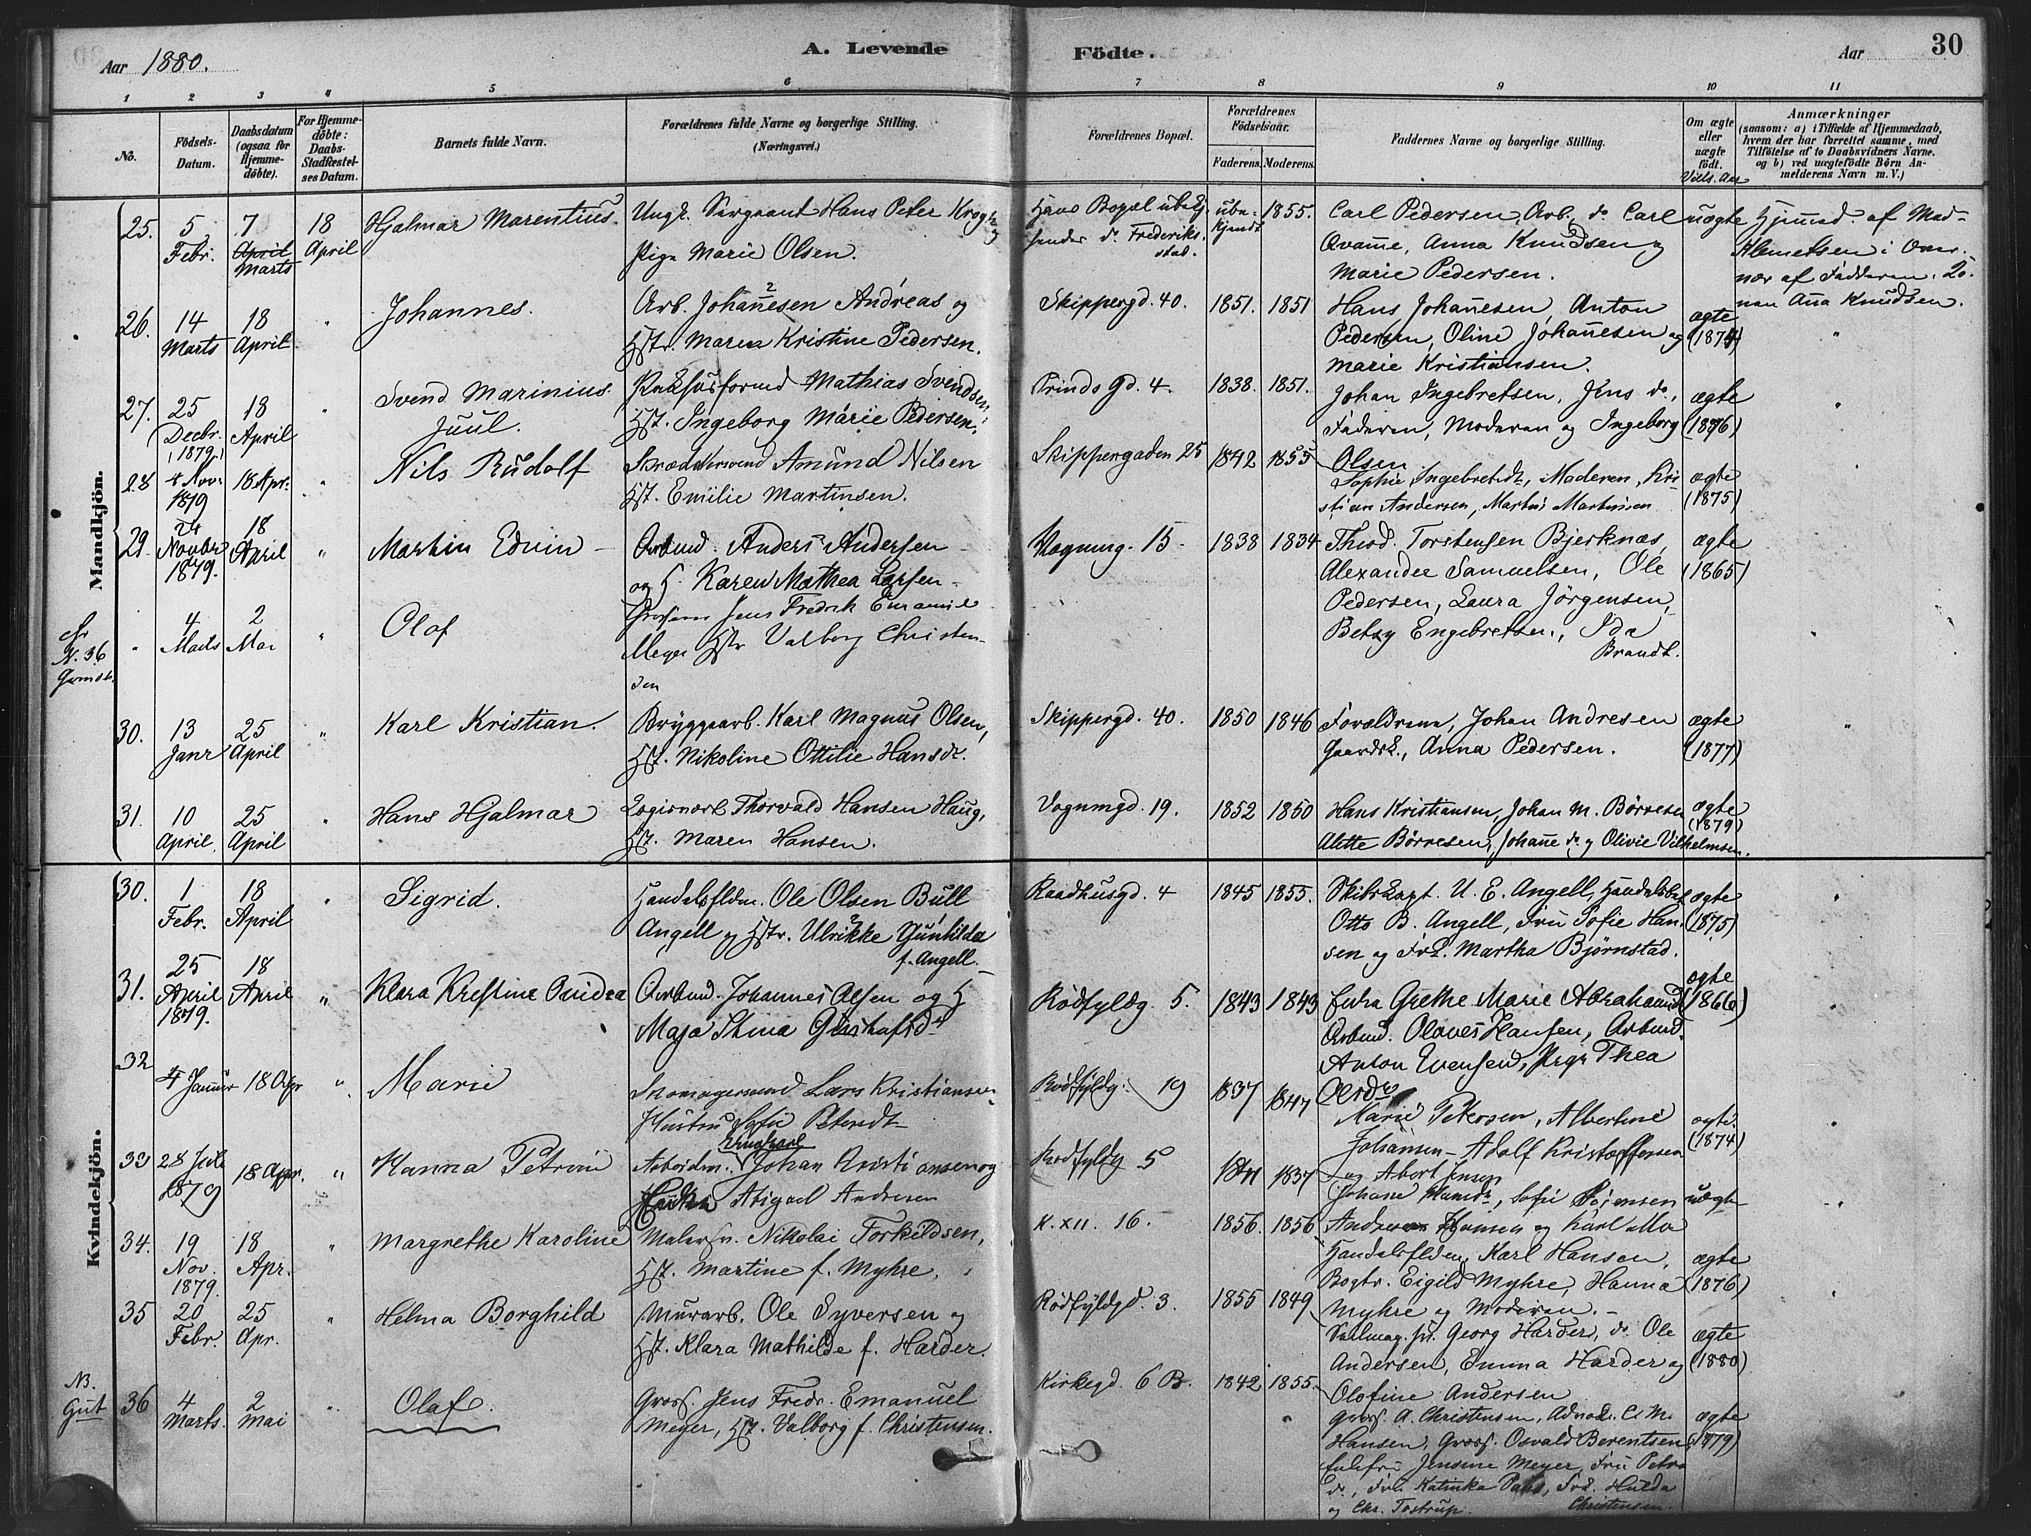 Aar 1880.
A. Levende
Födte.
Aar
30
1 2 3 4 5 6 7 8 9 10 11
No.
Födsels-Datum.
Daabsdatum (ogsaa for Hjemmedöbte).
For Hjemmedöbte: Daabs-Stadfæstelses Datum.
Barnets fulde Navn.
Forældrenes fulde Navne og borgerlige Stilling.
(Næringsvei.)
Forældrenes Bopæl.
Forældrenes Födselsaar.
Faderens. Moderens.
Faddernes Navne og borgerlige Stilling.
Om ægte eller uægte födt.
Viels. Aar
Anmærkninger
(saasom: a) i Tilfælde af Hjemmedaab, hvem der har forrettet samme, med Tilföielse af to Daabsvidners Navne, og b) ved uægtefödte Börn Anmelderens Navn m. V.)
Mandkjön.
25. 5 Febr. 7 April Marts 18 April Hjalmar Marentius. Ungk. Sergeant Hans Peter Krogh og
Pige Marie Olsen.
Hans Bopæl ubekj-
ender do Frederiks-
stad.
ube-
kjendt 1855. Carl Pedersen, Arb. do Carl
Qvame, Anna Knudsen og
Marie Pedersen.
uægte
Hjemmed. af Mad.
Klemetsen i Over-
vær af Fadderen
Ana Knudsen.
26. 14 Marts 18 April " Johannes. Arb. Johanesen Andreas og
Hstr. Maren Kristine Pedersen.
Skippergd. 40. 1851. 1851 Hans Johanesen, Anton
Pedersen, Oline Johanesen og
Marie Kristiansen.
ægte (1874) "
27. 25 Decbr. (1879.) 18 April " Svend Marinius
Juul.
Pakhusformd Mathias Svendsen,
Hst. Ingeborg Marie Pedersen.
Prinds Gd. 4. 1838. 1851. Johan Ingebretsen, Jens do,
Faderen, Moderen og Ingeborg
Olsen
ægte (1876) "
28 4 Nov. 1879 18 Apr. " Nils Rudolf Skræddersvend Amund Nilsen
Hst. Emilie Martinsen.
Skippergaden 25 1842 1855 Sophie Ingebretsdt, Moderen, Kri-
stian Andersen, Martin Martinsen
ægte (1875)
29. 24 Novbr 1879. 18 April " Martin Edvin – Arbmd. Anders Andersen
og H. Karen Mathea Larsen –
Vognmg. 15. 1838 1834 Theod. Torstensen Bjerknæs,
Alexander Samuelsen, Ole
Pedersen, Laura Jørgensen,
Betsy Engebretsen, Ida
Brandt.
ægte (1865)
N. 36
" 4 Marts 2 Mai " Olaf
Jens Fredrik Emanuel
Meyer Hstr Valborg Christen-
sen
30. 13 Janr 25 April " Karl Kristian. Bryggearb. Karl Magnus Olsen,
Hst. Nikoline Ottilie Hansdt.
Skippergd. 40. 1850 1846 Forældrene, Johan Andresen
Gaardsk., Anna Pedersen.
ægte (1877) "
31. 10 April 25 April " Hans Hjalmar Logisvært Thorvald Hansen Haug,
Hst. Maren Hansen.
Vognmgd. 19. 1852 1850 Hans Kristiansen, Johan M. Børresen
Alette Børresen, Johane do og Olivie Vilhelmsen.
ægte (1879)
Kvindekjön.
30. 1 Febr. 18 April " Sigrid. Handelsfldm. Ole Olsen Bull
Angell og Hstr. Ulrikke Gunhilda
f. Angell.
Raadhusgd. 4 1845 1855. Skibskapt. U. E. Angell, Handelsbet
Otto B. Angell, Fru Sofie Han-
sen og Frk. Martha Bjørnstad.
ægte (1875) "
31. 25 April 1879. 18 April " Klara Krestine Ovidea Arbmd. Johannes Olsen og H
Maja Stina Gustafsdr
Rødfyldg. 5. 1843 1843 Enke Grethe Marie Abrahamsd
Arbmd. Olaves Hansen, Arbmd.
Anton Evensen, Pige Thea
Olsdr
ægte (1866) "
32 4 Januar 18 Apr " Marie Skomagersvend Lars Kristiansen
Hustru Sofie Petersdt
Rødfyldg. 19 1837 1847 Marie Petersen, Albertine
Johansen – Adolf Kristoffersen
og Abort Jensen
ægte. (1874)
33 28 Jule 1879 18 Apr. " Kanna Petrine Arbeidm. Ungkarl Johan Kristiansen og
Enken Abigael Andresen
Rødfyldg 5 1841 1837 Johane Hansdr, Sofie
Andreas Hansen og Karl Mo
uægte "
34. 19 Nov. 1879. 18 Apr. " Margrethe Karoline Malersv. Nikolai Torkildsen,
Hst. Martine f. Myhre.
K. XII. 16. 1856. 1856 Handelsflden Karl Hansen,
Bogtr. Eigild Myhre, Hanna
Myhre og Moderen. –
ægte (1876)
35 20 Febr. 25 Apr. " Helma Borghild Murarb. Ole Syversen og
Hst. Klara Mathilde f. Harder.
Rødfyldgd. 3. 1855 1849 Salmag. sv. Georg Harder, do Ole
Andersen, Emma Harder og
Olofine Andersen
ægte (1880)
NB.
Gut
36 4 Marts. 2 Mai " Olaf. Gross. Jens Fredr. Emanuel
Meyer, Hst. Valborg f. Christensen.
Kirkegd. 6 B. 1842 1855. Gross. A. Christensen, Advoc. C. M.
Hansen, Gross. Osvald Berentsen,
Enkefru Jensine Meyer, Fru Petra
do, Frk. Katinka Paus, Frk. Hulda
Christensen.
og Chr. Tostrup.
ægte (1879)